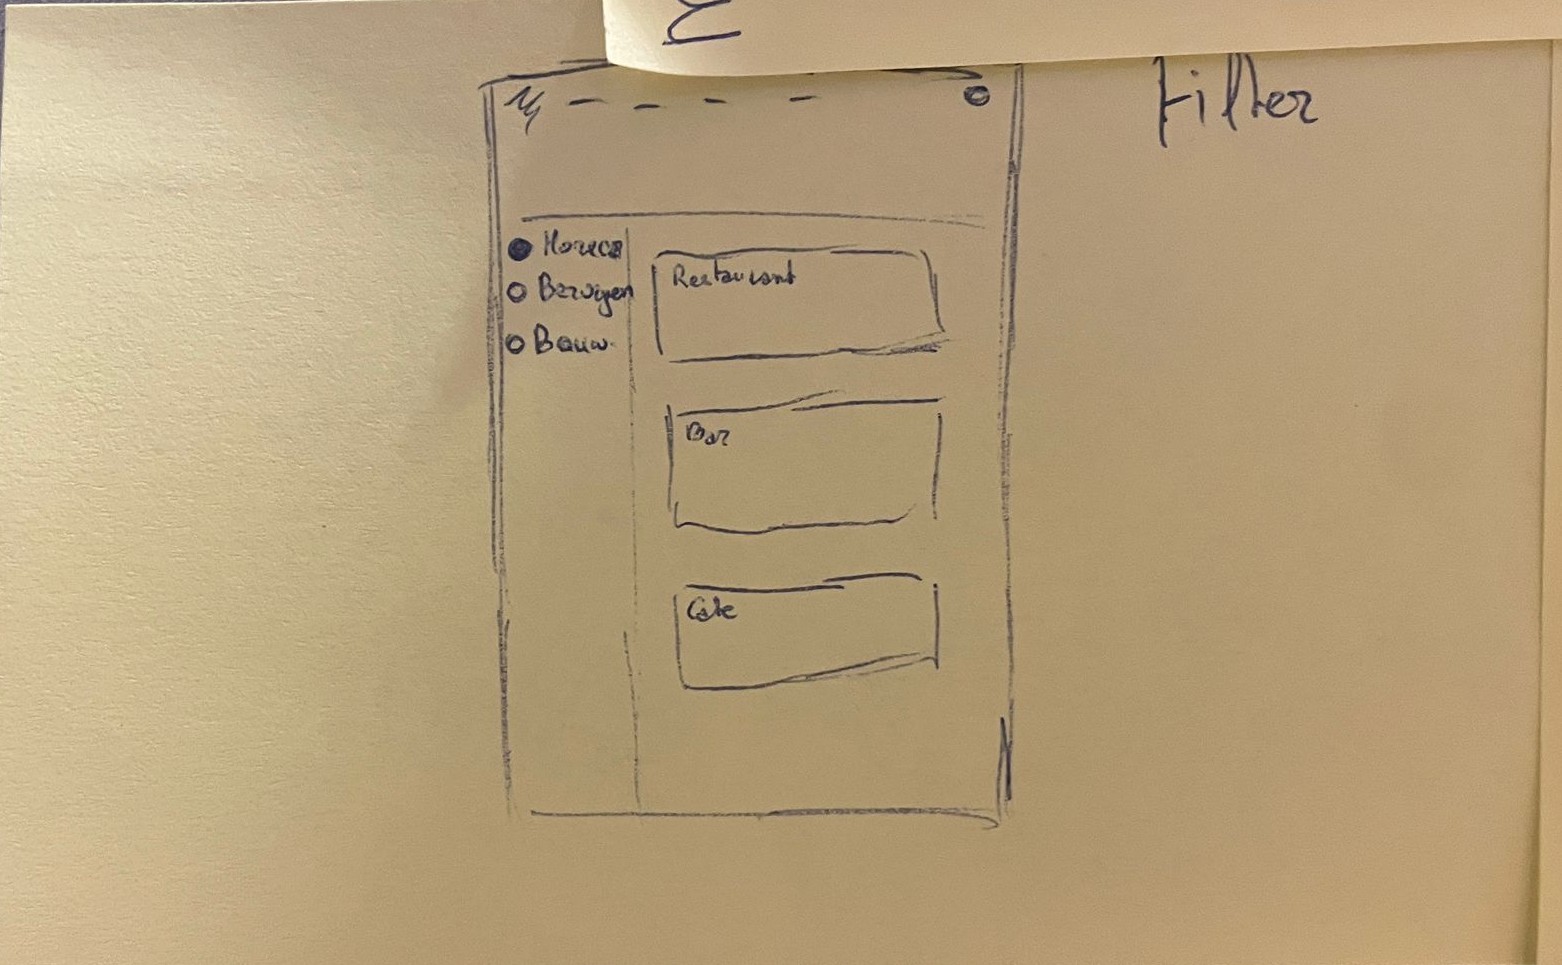 Filter
Horeca
Bezorgen
Bouw
Restaurant
Bar
Cafe